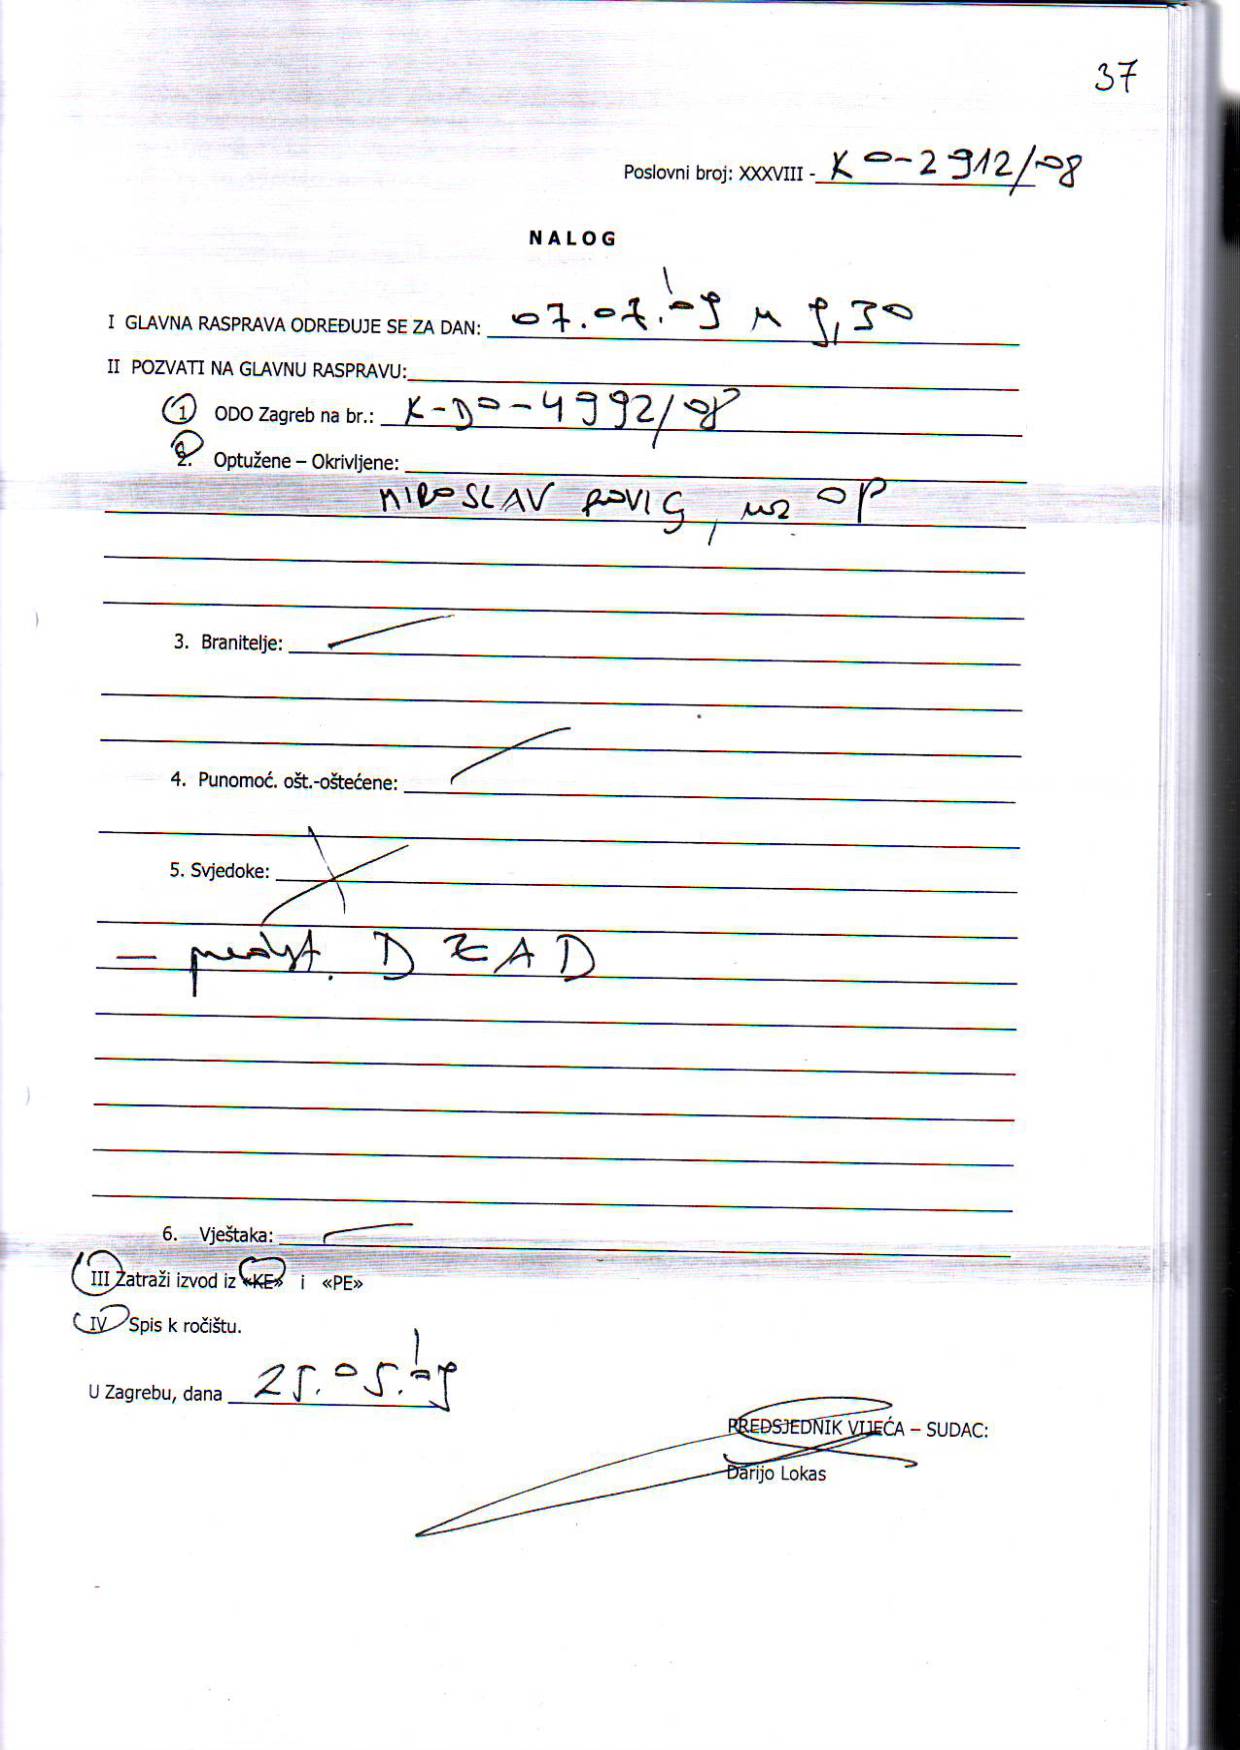 37
Poslovni broj: XXXVIII - KO-2912/08
NALOG
I GLAVNA RASPRAVA ODREĐUJE SE ZA DAN: 07.07.'09 u 9,30
II POZVATI NA GLAVNU RASPRAVU:
1 ODO Zagreb na br.: K-DO-4992/08
2. Optužene – Okrivljene:
MIROSLAV ROVIS, uz OP
3. Branitelje:
4. Punomoć. ošt.-oštećene:
5. Svjedoke:
– predst. DZAD
6. Vještaka:
III Zatraži izvod iz «KE» i «PE»
IV Spis k ročištu.
U Zagrebu, dana 25.05.'09
PREDSJEDNIK VIJEĆA – SUDAC:
Darijo Lokas